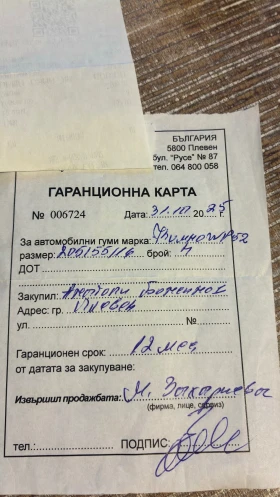 БЪЛГАРИЯ
5800 Плевен
бул. "Русе" № 87
тел. 064 800 058
ГАРАНЦИОННА КАРТА
№ 006724 Дата: 31.10 2025
За автомобилни гуми марка:
размер: 205/55/16 брой:
ДОТ
Закупил: Анатоли Боженинов
Адрес: гр. Плевен
ул. №
Гаранционен срок: 12 мес
от датата за закупуване:
Извършил продажбата: М. Захариева
(фирма, лице, сервиз)
тел.: ПОДПИС: